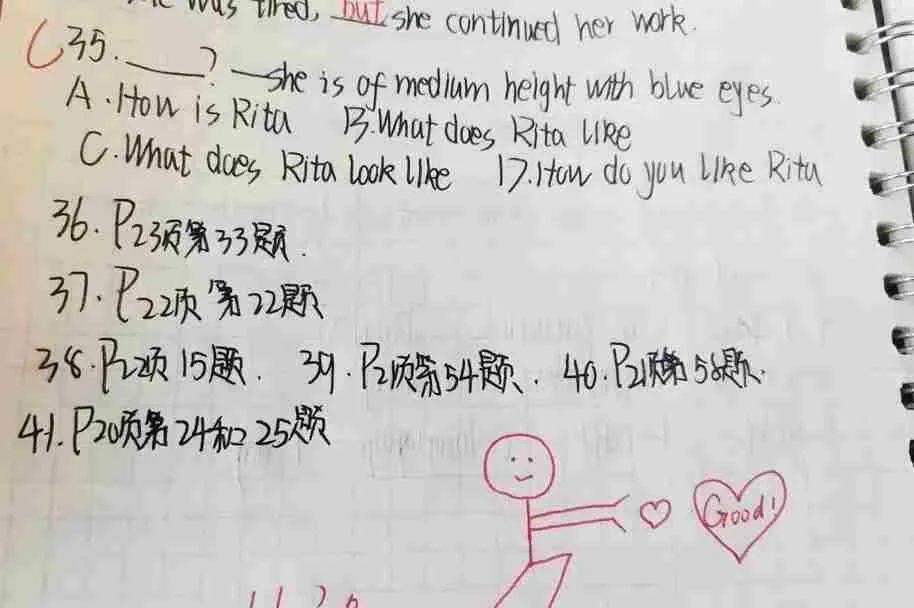 was tired, but she continued her work.
C 35. ____? —she is of medium height with blue eyes.
A. How is Rita B. What does Rita like
C. What does Rita look like D. How do you like Rita
36. P23页第33题.
37. P22页第22题
38. P22页15题. 39. P21页第54题. 40. P21页第58题.
41. P20页第24和25题
Good!